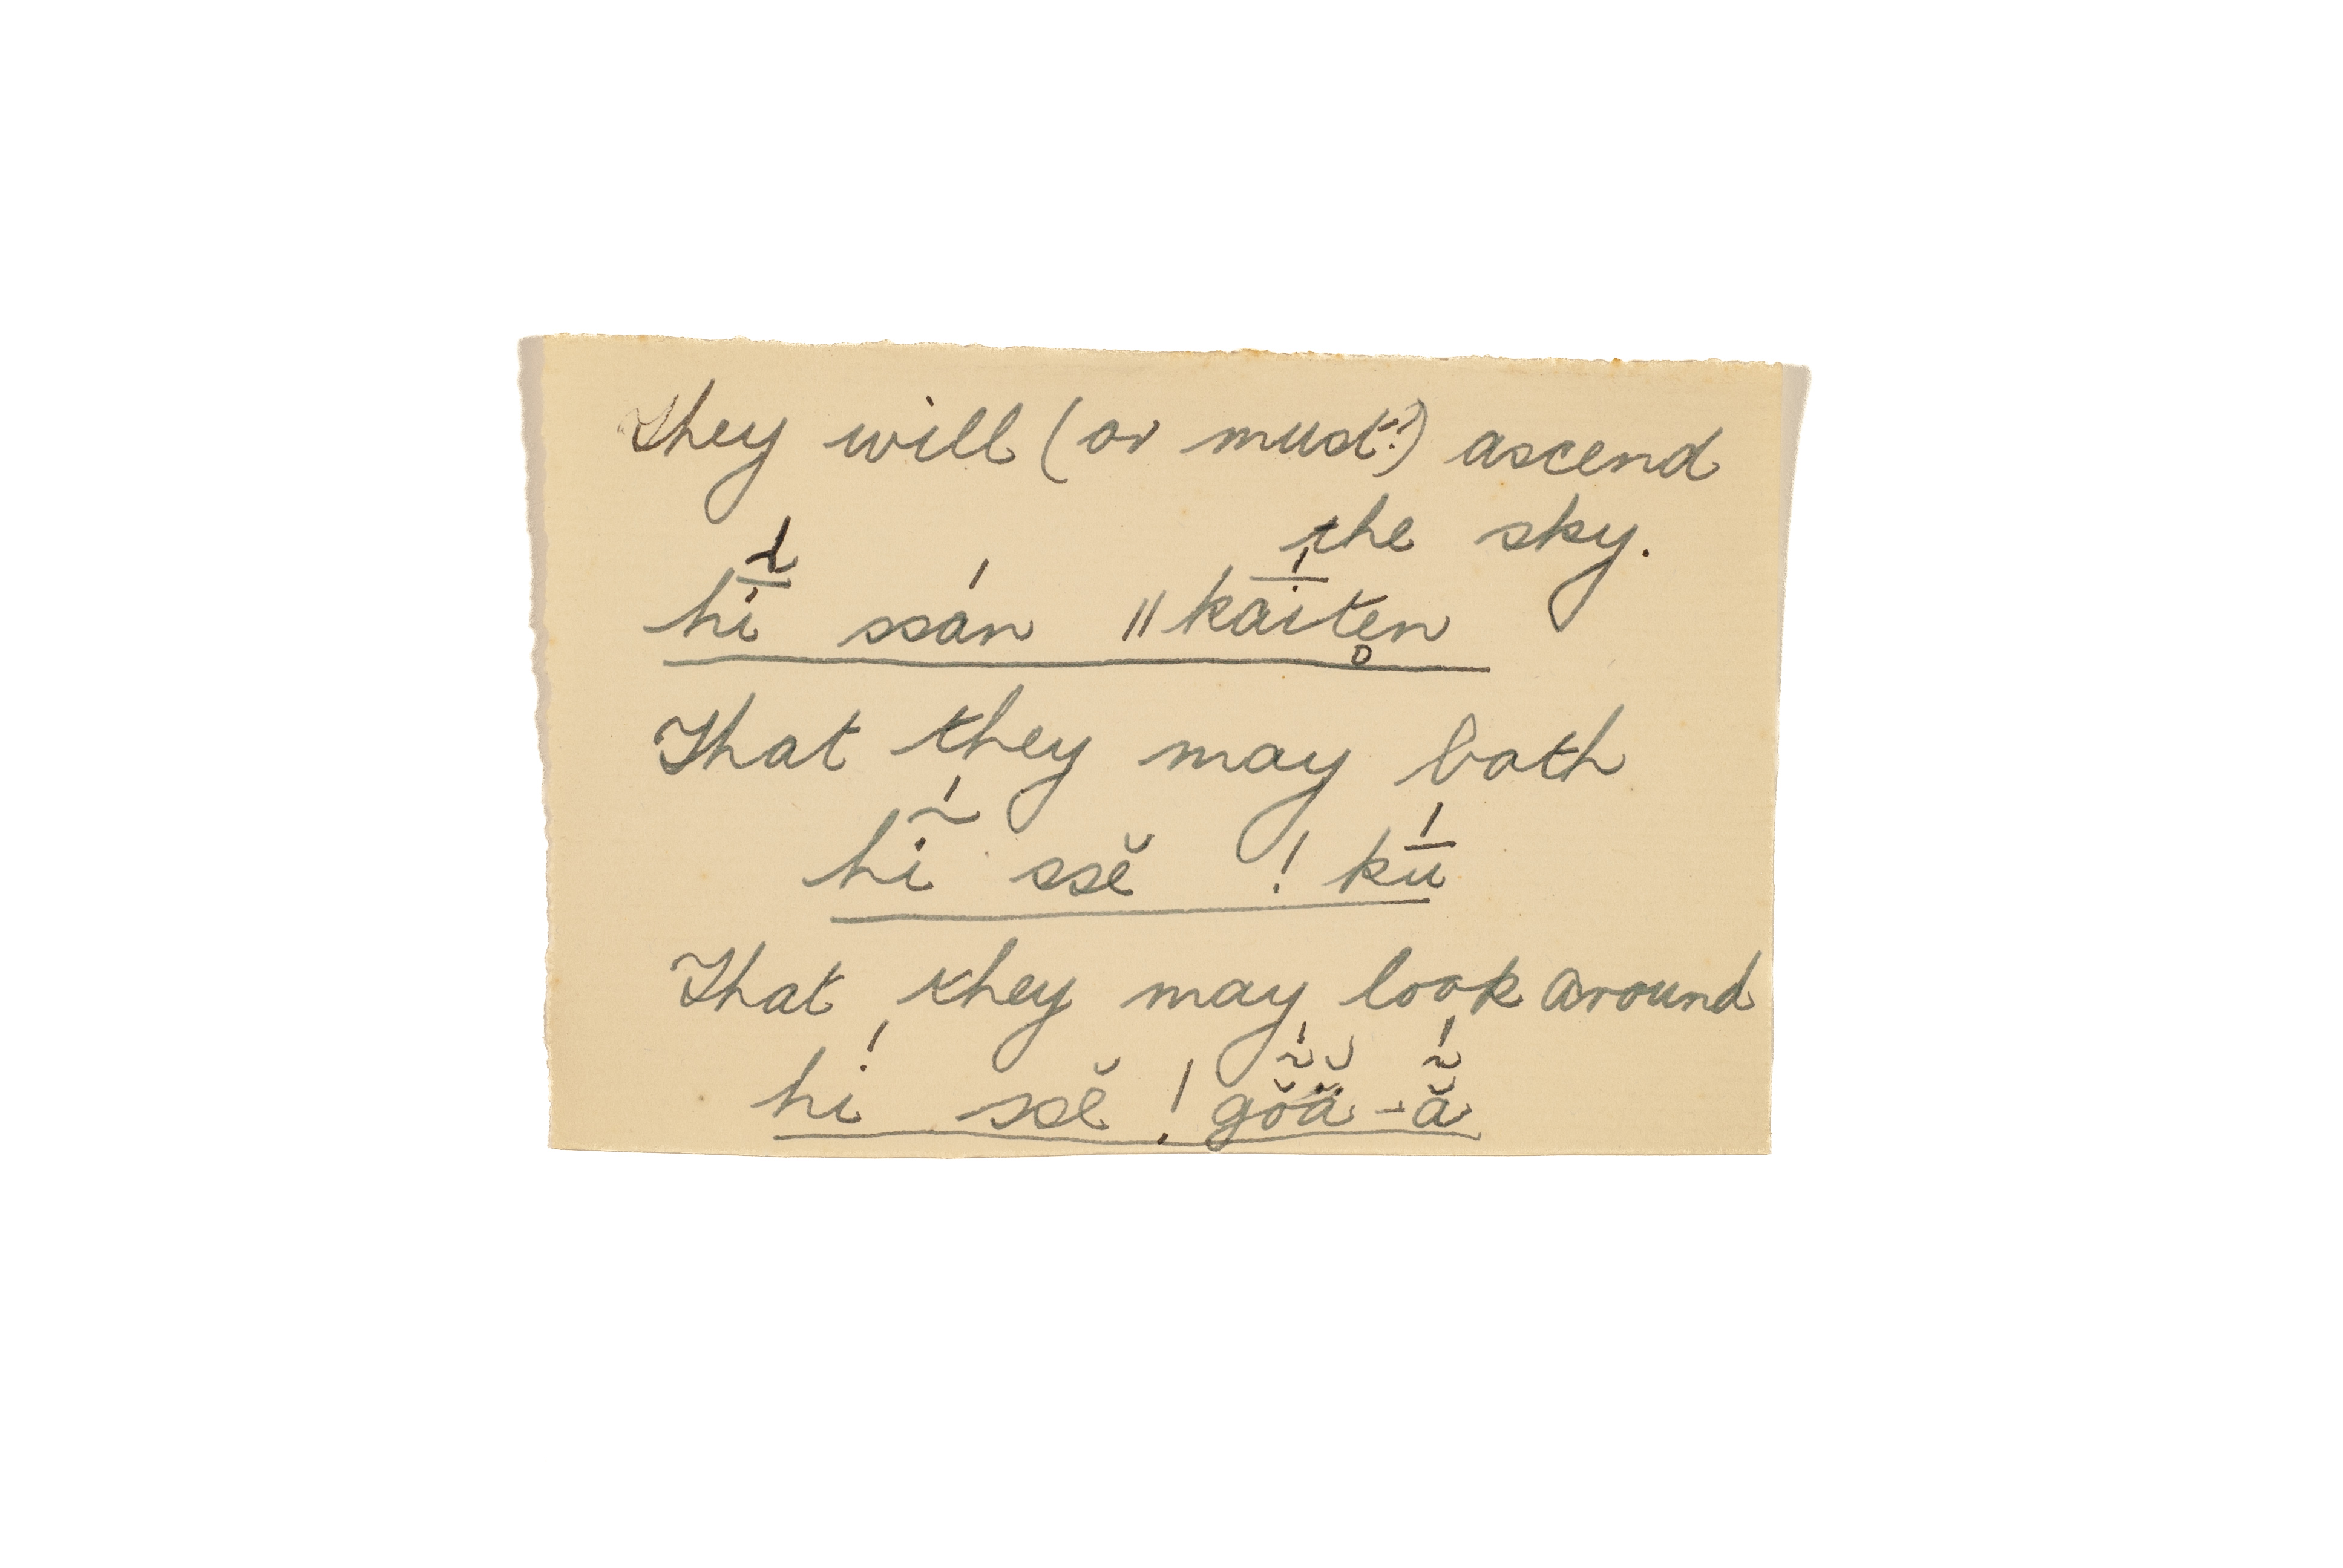 They will (or must?) ascend
the sky.
hī̃́ ssán ǁkā́itẹn
That they may both
hĩ́ ssĕ ! kū́
That they may look around
hí ssĕ ! gŏ̃́ẵ - ã̆́